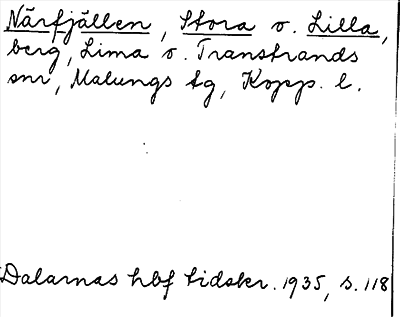 Närfjällen, Stora o. Lilla,
berg, Lima o. Transtrands
snr, Malungs tg, Kopp. l.
Dalarnas hbf tidskr. 1935, s. 118